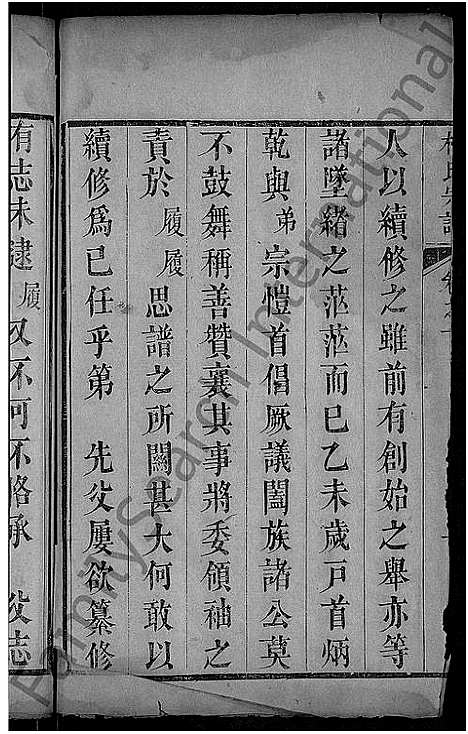 人以續修之雖前有創始之舉亦等
諸墜緒之茫茫而已乙未歲戶首炳
乾與弟宗愷首倡厥議闔族諸公莫
不鼓舞稱善贊襄其事將委領袖之
責於履履思譜之所關甚大何敢以
續修為己任乎第 先父屢欲纂修
有志未逮履又不可不略承 父志
FamilySearch International